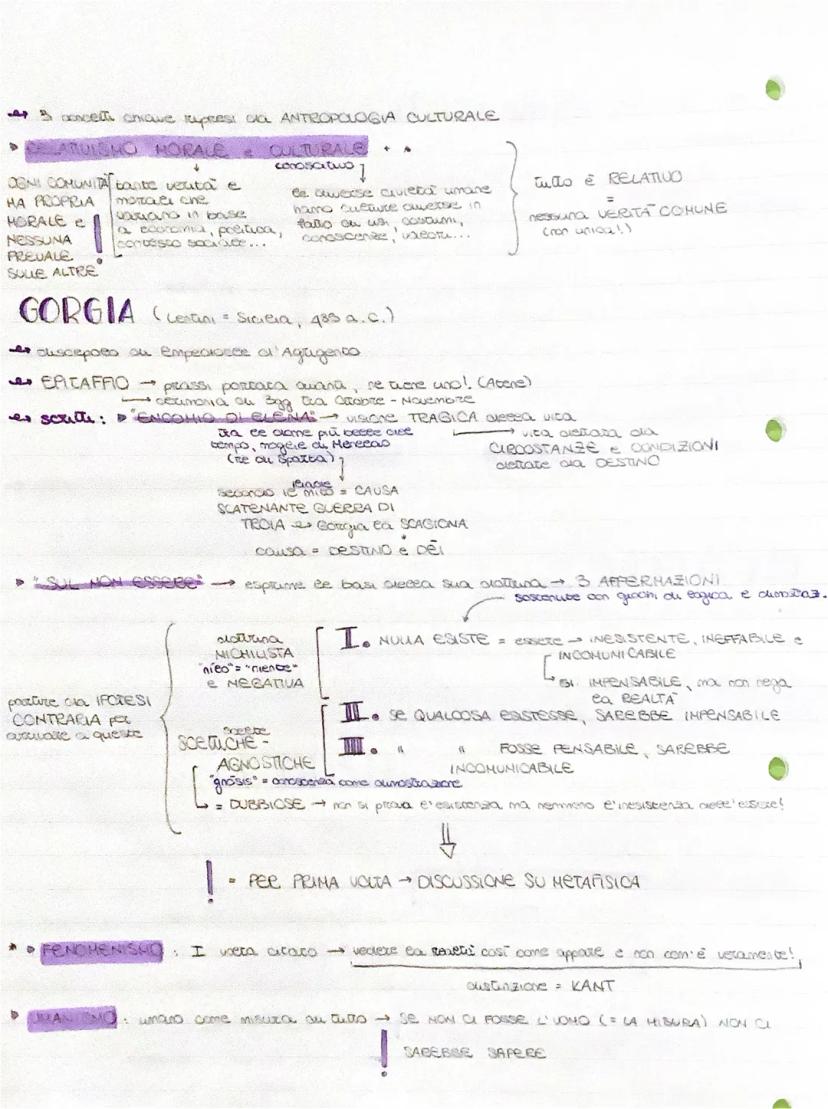 3 concetti chiave ripresi da ANTROPOLOGIA CULTURALE
RELATIVISMO MORALE e CULTURALE * *
conoscitivo
OGNI COMUNITÀ
HA PROPRIA
MORALE e
NESSUNA
PREVALE
SULLE ALTRE
tante verità e
morali che
variano in base
a economia, politica,
contesto sociale...
le diverse civiltà umane
hanno culture diverse in
fatto di usi, costumi,
conoscenze, valori...
tutto è RELATIVO
=
nessuna VERITÀ COMUNE
(non unica!)
GORGIA (Lentini = Sicilia, 483 a.C.)
discepolo di Empedocle d'Agrigento
EPITAFFIO → prassi portata avanti, ne tiene uno! (Atene)
cerimonia di 3gg tra Ottobre - Novembre
scritti: "ENCOMIO DI ELENA" → visione TRAGICA della vita
tra le donne più belle del
tempo, moglie di Menelao
(re di Sparta)
vita dettata da
CIRCOSTANZE e CONDIZIONI
dettate da DESTINO
secondo il mito = CAUSA
SCATENANTE GUERRA DI
TROIA → Gorgia la SCAGIONA
causa = DESTINO e DÈI
"SUL NON ESSERE" → esprime le basi della sua dottrina → 3 AFFERMAZIONI
sostenute con giochi di logica e dimostraz.
partire da IPOTESI
CONTRARIA per
arrivare a queste
dottrina
NICHILISTA
"nilo" = "niente"
e NEGATIVA
I. NULLA ESISTE = essere → INESISTENTE, INEFFABILE e
INCOMUNICABILE
SI: IMPENSABILE, ma non nega
la REALTÀ
II. SE QUALCOSA ESISTESSE, SAREBBE IMPENSABILE
III. " " FOSSE PENSABILE, SAREBBE
INCOMUNICABILE
scelte
SCETTICHE -
AGNOSTICHE
"gnōsis" = conoscenza come dimostrazione
= DUBBIOSE → non si prova l'esistenza ma nemmeno l'inesistenza dell'essere!
! = PER PRIMA VOLTA → DISCUSSIONE SU METAFISICA
* FENOMENISMO: I volta citato → vedere la realtà così come appare e non com'è veramente!
distinzione = KANT
UMANISMO: umano come misura di tutto → SE NON CI FOSSE L'UOMO (= LA MISURA) NON CI
! SAREBBE SAPERE